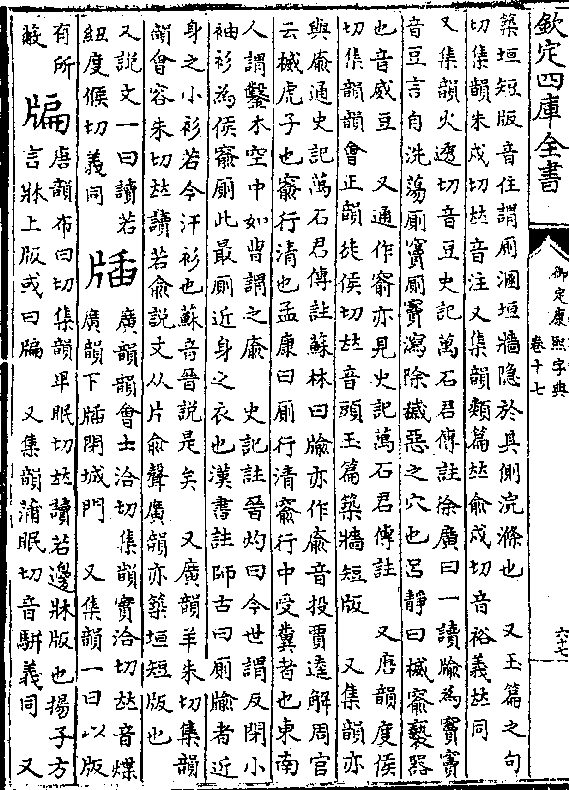 欽定四庫全書
御定康熙字典
卷十七
六十七
築垣短版音住謂厠溷垣牆隐於其側浣滌也　又玉篇之句
切集韻朱戍切𠀤音注又集韻類篇𠀤俞戍切音裕義𠀤同
又集韻火透切音豆史記萬石君傳註徐廣曰一讀牏為竇竇
音豆言自洗蕩厠竇厠竇瀉除穢惡之穴也呂靜曰楲窬褻器
也音威豆　又通作窬亦見史記萬石君傳註　又唐韻度侯
切集韻韻會正韻徒侯切𠀤音頭玉篇築牆短版　又集韻亦
與廥通史記萬石君傳註蘇林曰牏亦作廥音投賈逵解周官
云楲虎子也窬行清也孟康曰厠行清窬行中受糞者也東南
人謂鑿木空中如曹謂之廥　史記註晉灼曰今世謂反閉小
袖衫為侯窬厠此最厠近身之衣也漢書註師古曰厠牏者近
身之小衫若今汗衫也蘇音晉說是矣　又廣韻羊朱切集韻
韻會容朱切𠀤讀若俞説文从片俞聲廣韻亦築垣短版也
又説文一曰讀若紐度𠋫切義同　牐　廣韻韻會士洽切集韻實洽切𠀤音煠廣韻下牐閉城門　又集韻一曰以版
有所蔽　牑　唐韻布𤣥切集韻卑眠切𠀤讀若邊牀版也揚子方言牀上版或曰牑　又集韻蒲眠切音騈義同　又